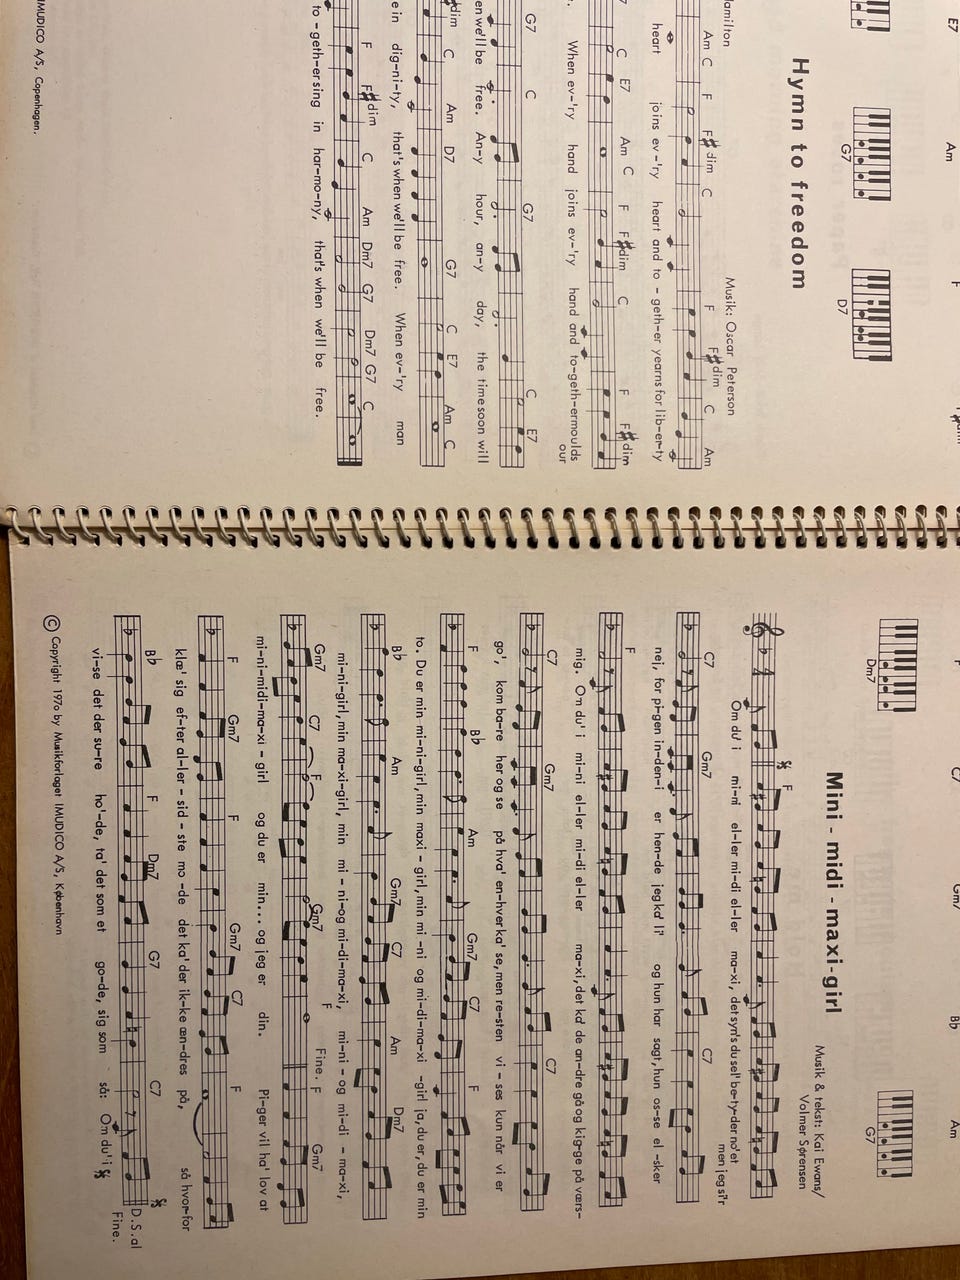 E7 Am F F♯dim
G7 D7
Hymn to freedom
Musik: Oscar Peterson
amilton
Am C F F♯dim C F F♯dim C Am
heart joins ev-'ry heart and to - geth-er yearns for lib-er-ty
C E7 Am C F F♯dim C F F♯dim
When ev-'ry hand joins ev-'ry hand and to-geth-er moulds our
G7 C G7 C E7
en we'll be free. An-y hour, an-y day, the time soon will
dim C Am D7 G7 C E7 Am C
e in dig-ni-ty, that's when we'll be free. When ev-'ry man
F F♯dim C Am Dm7 G7 Dm7 G7 C
to - geth-er sing in har-mo-ny, that's when we'll be free.
IMUDICO A/S, Copenhagen.
F C7 Gm7 Bb Am
Dm7 G7
Mini - midi - maxi-girl
Musik & tekst: Kai Ewans/
Volmer Sørensen
F
Om du' i mi-ni el-ler mi-di el-ler ma-xi, det syn's du sel' be-ty-der no'et
men jeg si'r
C7 Gm7 C7
nej, for pi-gen in-den-i er hen-de jeg ka' li' og hun har sagt, hun os-se el-sker
F
mig. Om du' i mi-ni el-ler mi-di el-ler ma-xi, det ka' de an-dre gå og kig-ge på værs-
C7 Gm7 C7
go', kom ba-re her og se på hva' en-hver ka' se, men re-sten vi-ses kun når vi er
F Bb Am Gm7 C7 F
to. Du er min mi-ni-girl, min maxi-girl, min mi-ni og mi-di-ma-xi -girl ja, du er, du er min
Bb Am Gm7 C7 Am Dm7
mi-ni-girl, min ma-xi-girl, min mi-ni-og mi-di-ma-xi, mi-ni - og mi-di - ma-xi,
Gm7 C7 F Gm7 F Fine. F Gm7
mi-ni-mi-di-ma-xi - girl og du er min... og jeg er din. Pi-ger vil ha' lov at
F Gm7 F Gm7 C7 F
klæ' sig ef-ter al-ler - sid-ste mo-de det ka' der ik-ke æn-dres på, så hvor-for
Bb F Dm7 G7 C7 D.S. al
Fine.
vi-se det der su-re ho'-de, ta' det som et go-de, sig som så: Om du' i
© Copyright 1970 by Musikforlaget IMUDICO A/S, København